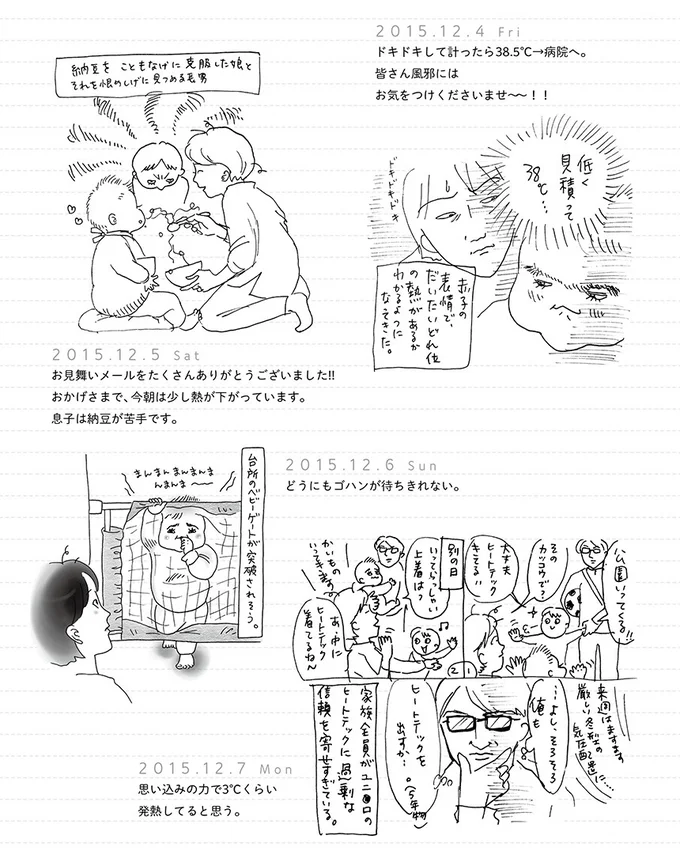 2015.12.4 Fri
ドキドキして計ったら38.5℃→病院へ。
皆さん風邪には
お気をつけくださいませ〜〜！！
低く
見積って
38℃…
ドキドキドキ
赤子の
表情で、
だいたいどれ位
の熱があるか
わかるように
なってきた。
納豆を こともなげに 克服した娘と
それを恨めしげに見つめる長男
2015.12.5 Sat
お見舞いメールをたくさんありがとうございました!!
おかげさまで、今朝は少し熱が下がっています。
息子は納豆が苦手です。
2015.12.6 Sun
どうにもゴハンが待ちきれない。
台所のベビーゲートが突破されそう。
まんまんまんまんま
んまんま〜〜
公園いってくる!!
その
カッコウで?
大丈夫
ヒートテック
きてる!!
別の日
いってらっしゃい
上着は?
かいもの
いってきます。
あ、中に
ヒートテック
着てるねん
1
2
来週はますます
厳しい冬型の
気圧配置に…
…よし、そろそろ
俺も
ヒートテックを
出すか…。(5年物)
家族全員がユニ●ロの
ヒートテックに過剰な
信頼を寄せすぎている。
2015.12.7 Mon
思い込みの力で3℃くらい
発熱してると思う。